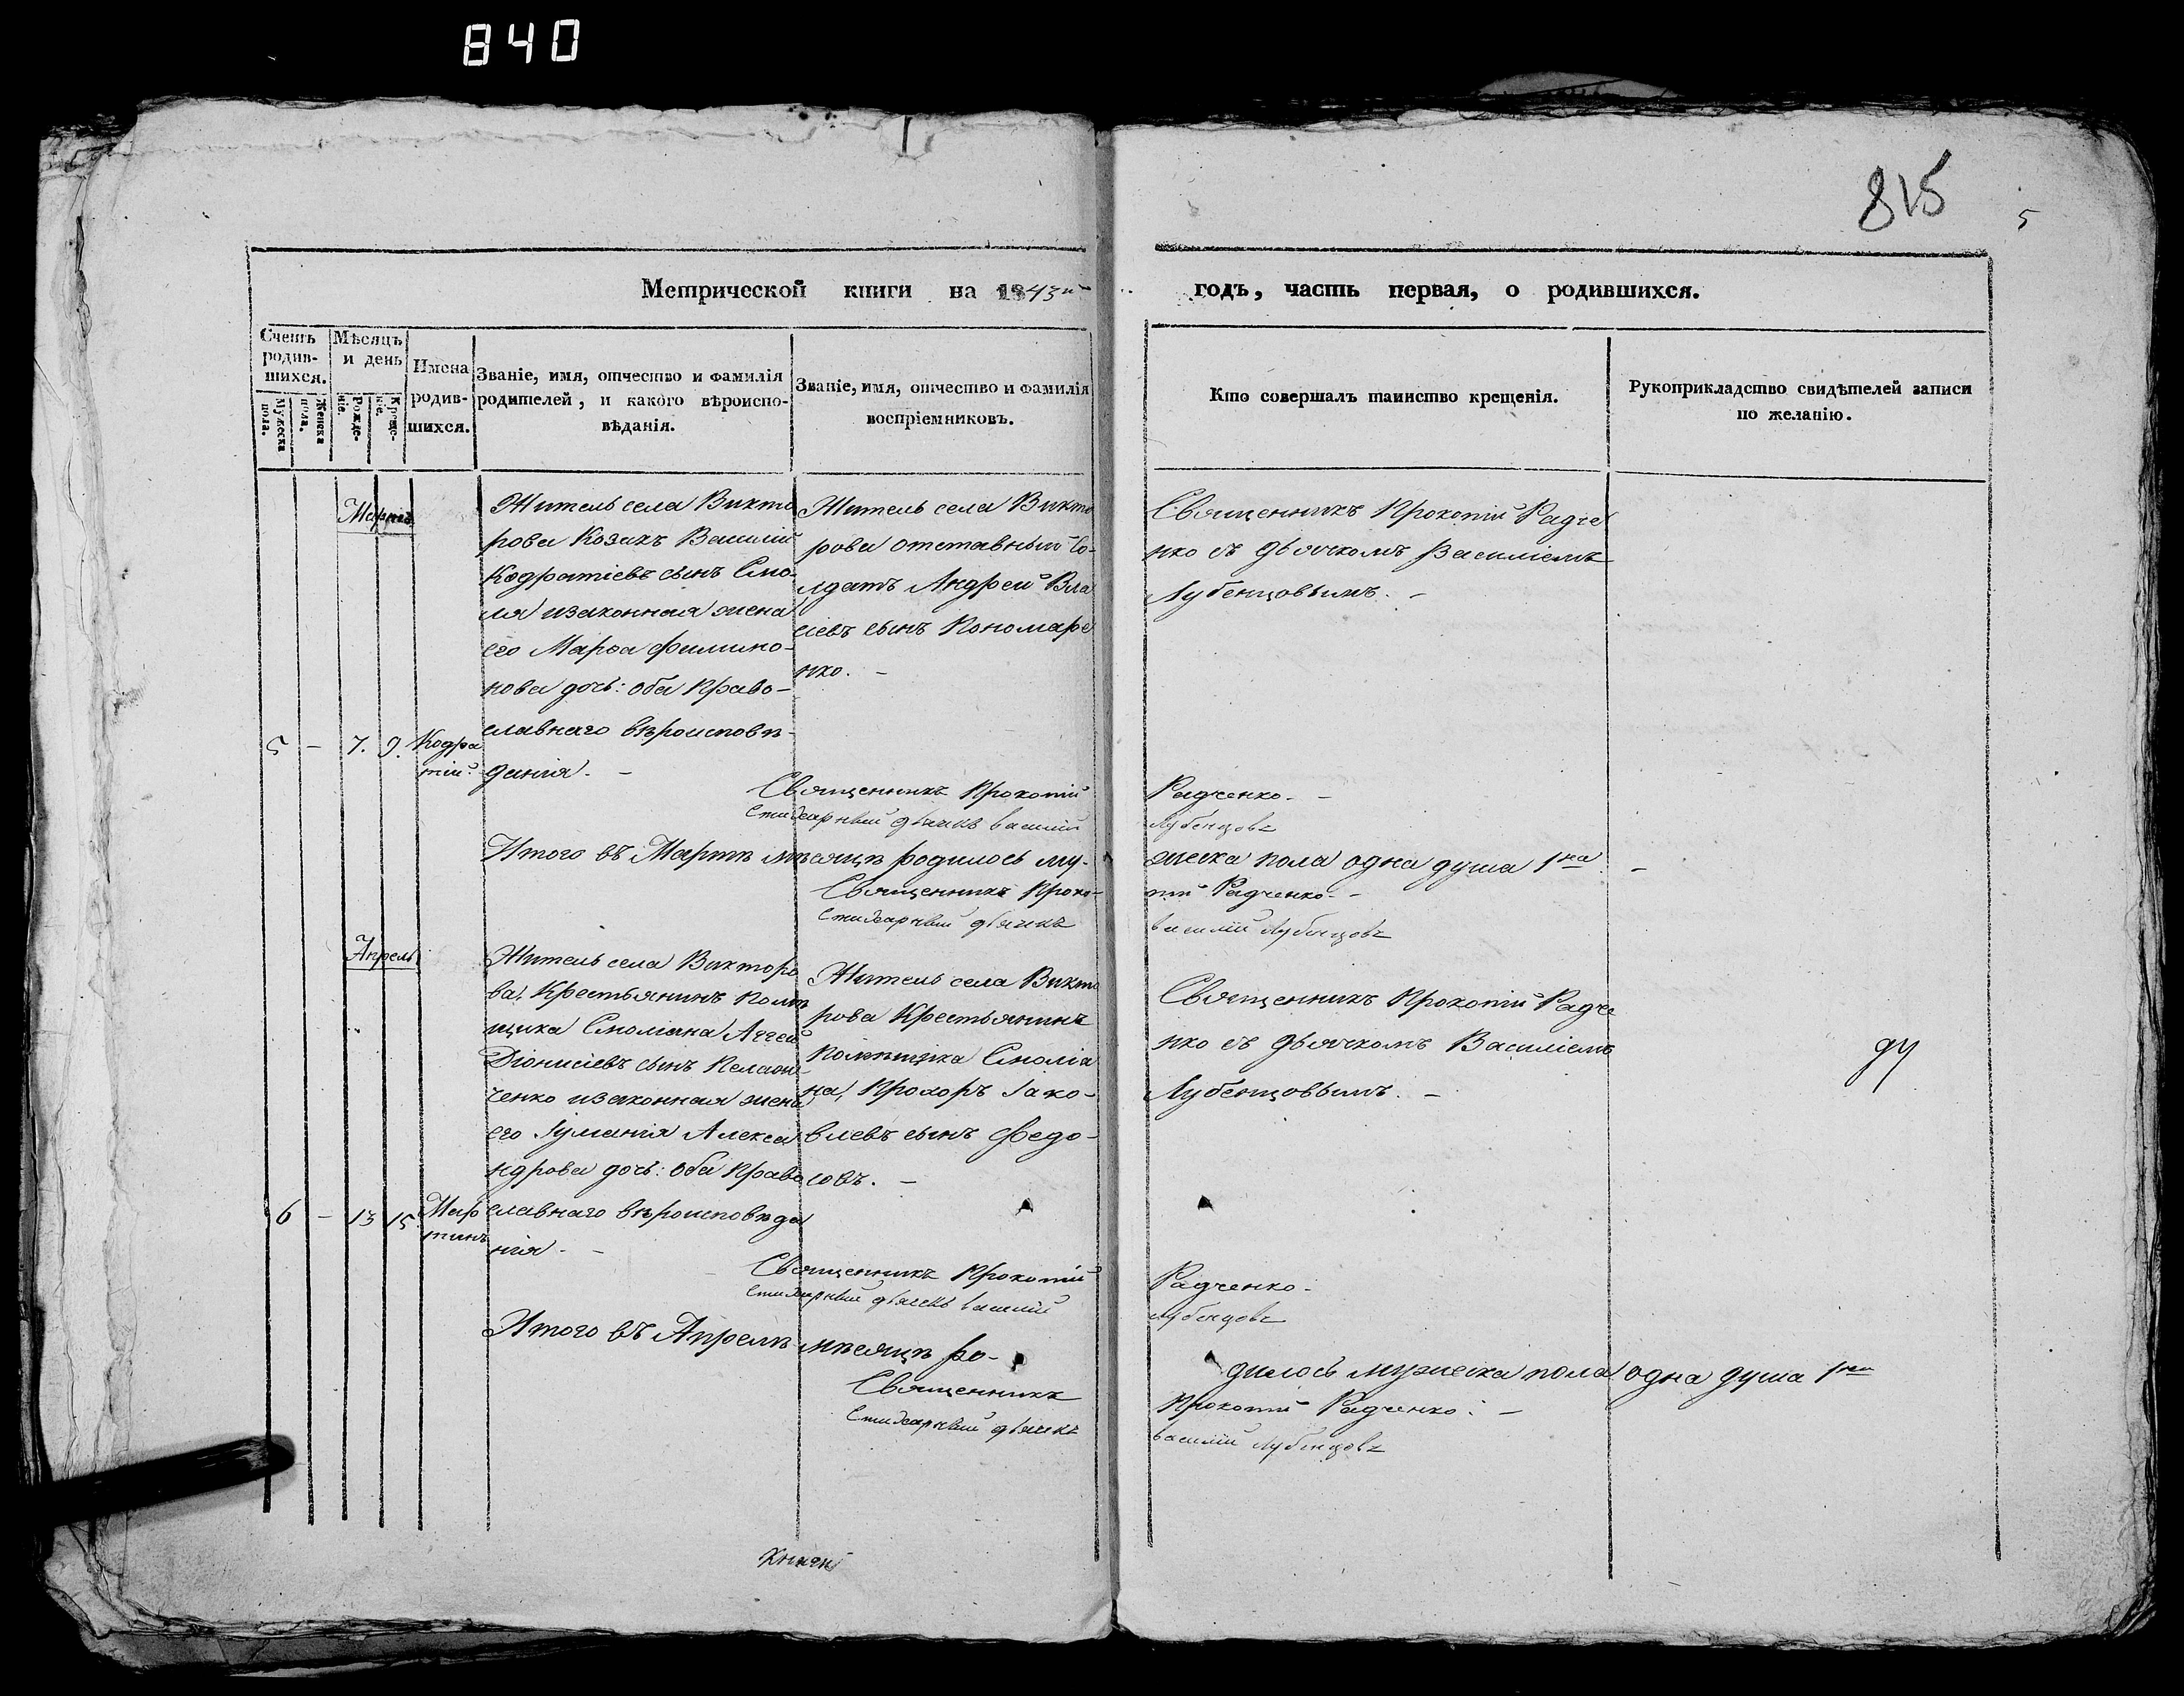 840
815
5
Метрической книги на 1843й
годъ, часть первая, о родившихся.
Счетъ родив-шихся.
Мужеска пола.
Женска пола.
Мѣсяцъ и день
Рожде-нiе.
Креще-нiе.
Имена родив-шихся.
Званiе, имя, отчество и фамилiя
родителей, и какого вѣроиспо-
вѣданiя.
Званiе, имя, отчество и фамилiя
воспрiемниковъ.
Кто совершалъ таинство крещенiя.
Рукоприкладство свидѣтелей записи
по желанiю.
Мартъ
5 – 7. 9. Кодра
тiй.
Житель села Викто
рова Козакъ Василiй
Кодратiевъ сынъ Смо-
ля изаконная жена
его Марѳа Филимо-
нова дочь: оба Право-
славнаго вѣроисповѣ-
данiя. –
Житель села Викто
рова отставный Со-
лдатъ Андрей Вла
сiевъ сынъ Пономаре
нко. –
Священникъ Прокопiй Радче
нко съ дьячкомъ Василiемъ
Лубенцовымъ. –
Священникъ Прокопiй Радченко. –
Стихарный дьячкъ василiй Лубенцовъ
Итого въ Мартѣ мѣсяцѣ родилось му-
жеска пола одна душа 1на. –
Священникъ Проко-
пiй Радченко. –
Стихарный дьячкъ
василiй Лубенцовъ
Апрель
6 – 13 15. Мар
тинъ
Житель села Викторо
ва, Крестьянинъ Помѣ
щика Смолiана Аггей
Дiонисiевъ сынъ
ченко изаконная жена
его Iулианiя Алекса
ндрова дочь: оба Право
славнаго вѣроисповѣда
нiя. –
Житель села Викто
рова Крестьянинъ
Помѣщика Смолiа
на, Прохоръ Iако-
влевъ сынъ Федо-
совъ. –
Священникъ Прокопiй Радче
нко съ дьячкомъ Василiемъ
Лубенцовымъ. –
Священникъ Прокопiй Радченко.
Стихарный дьячекъ василiй Лубенцовъ
Итого въ Апрелѣ мѣсяцѣ ро-
дилось мужеска пола одна душа 1на
Священникъ Прокопiй Радченко. –
Стихарный дьячкъ василiй Лубенцовъ